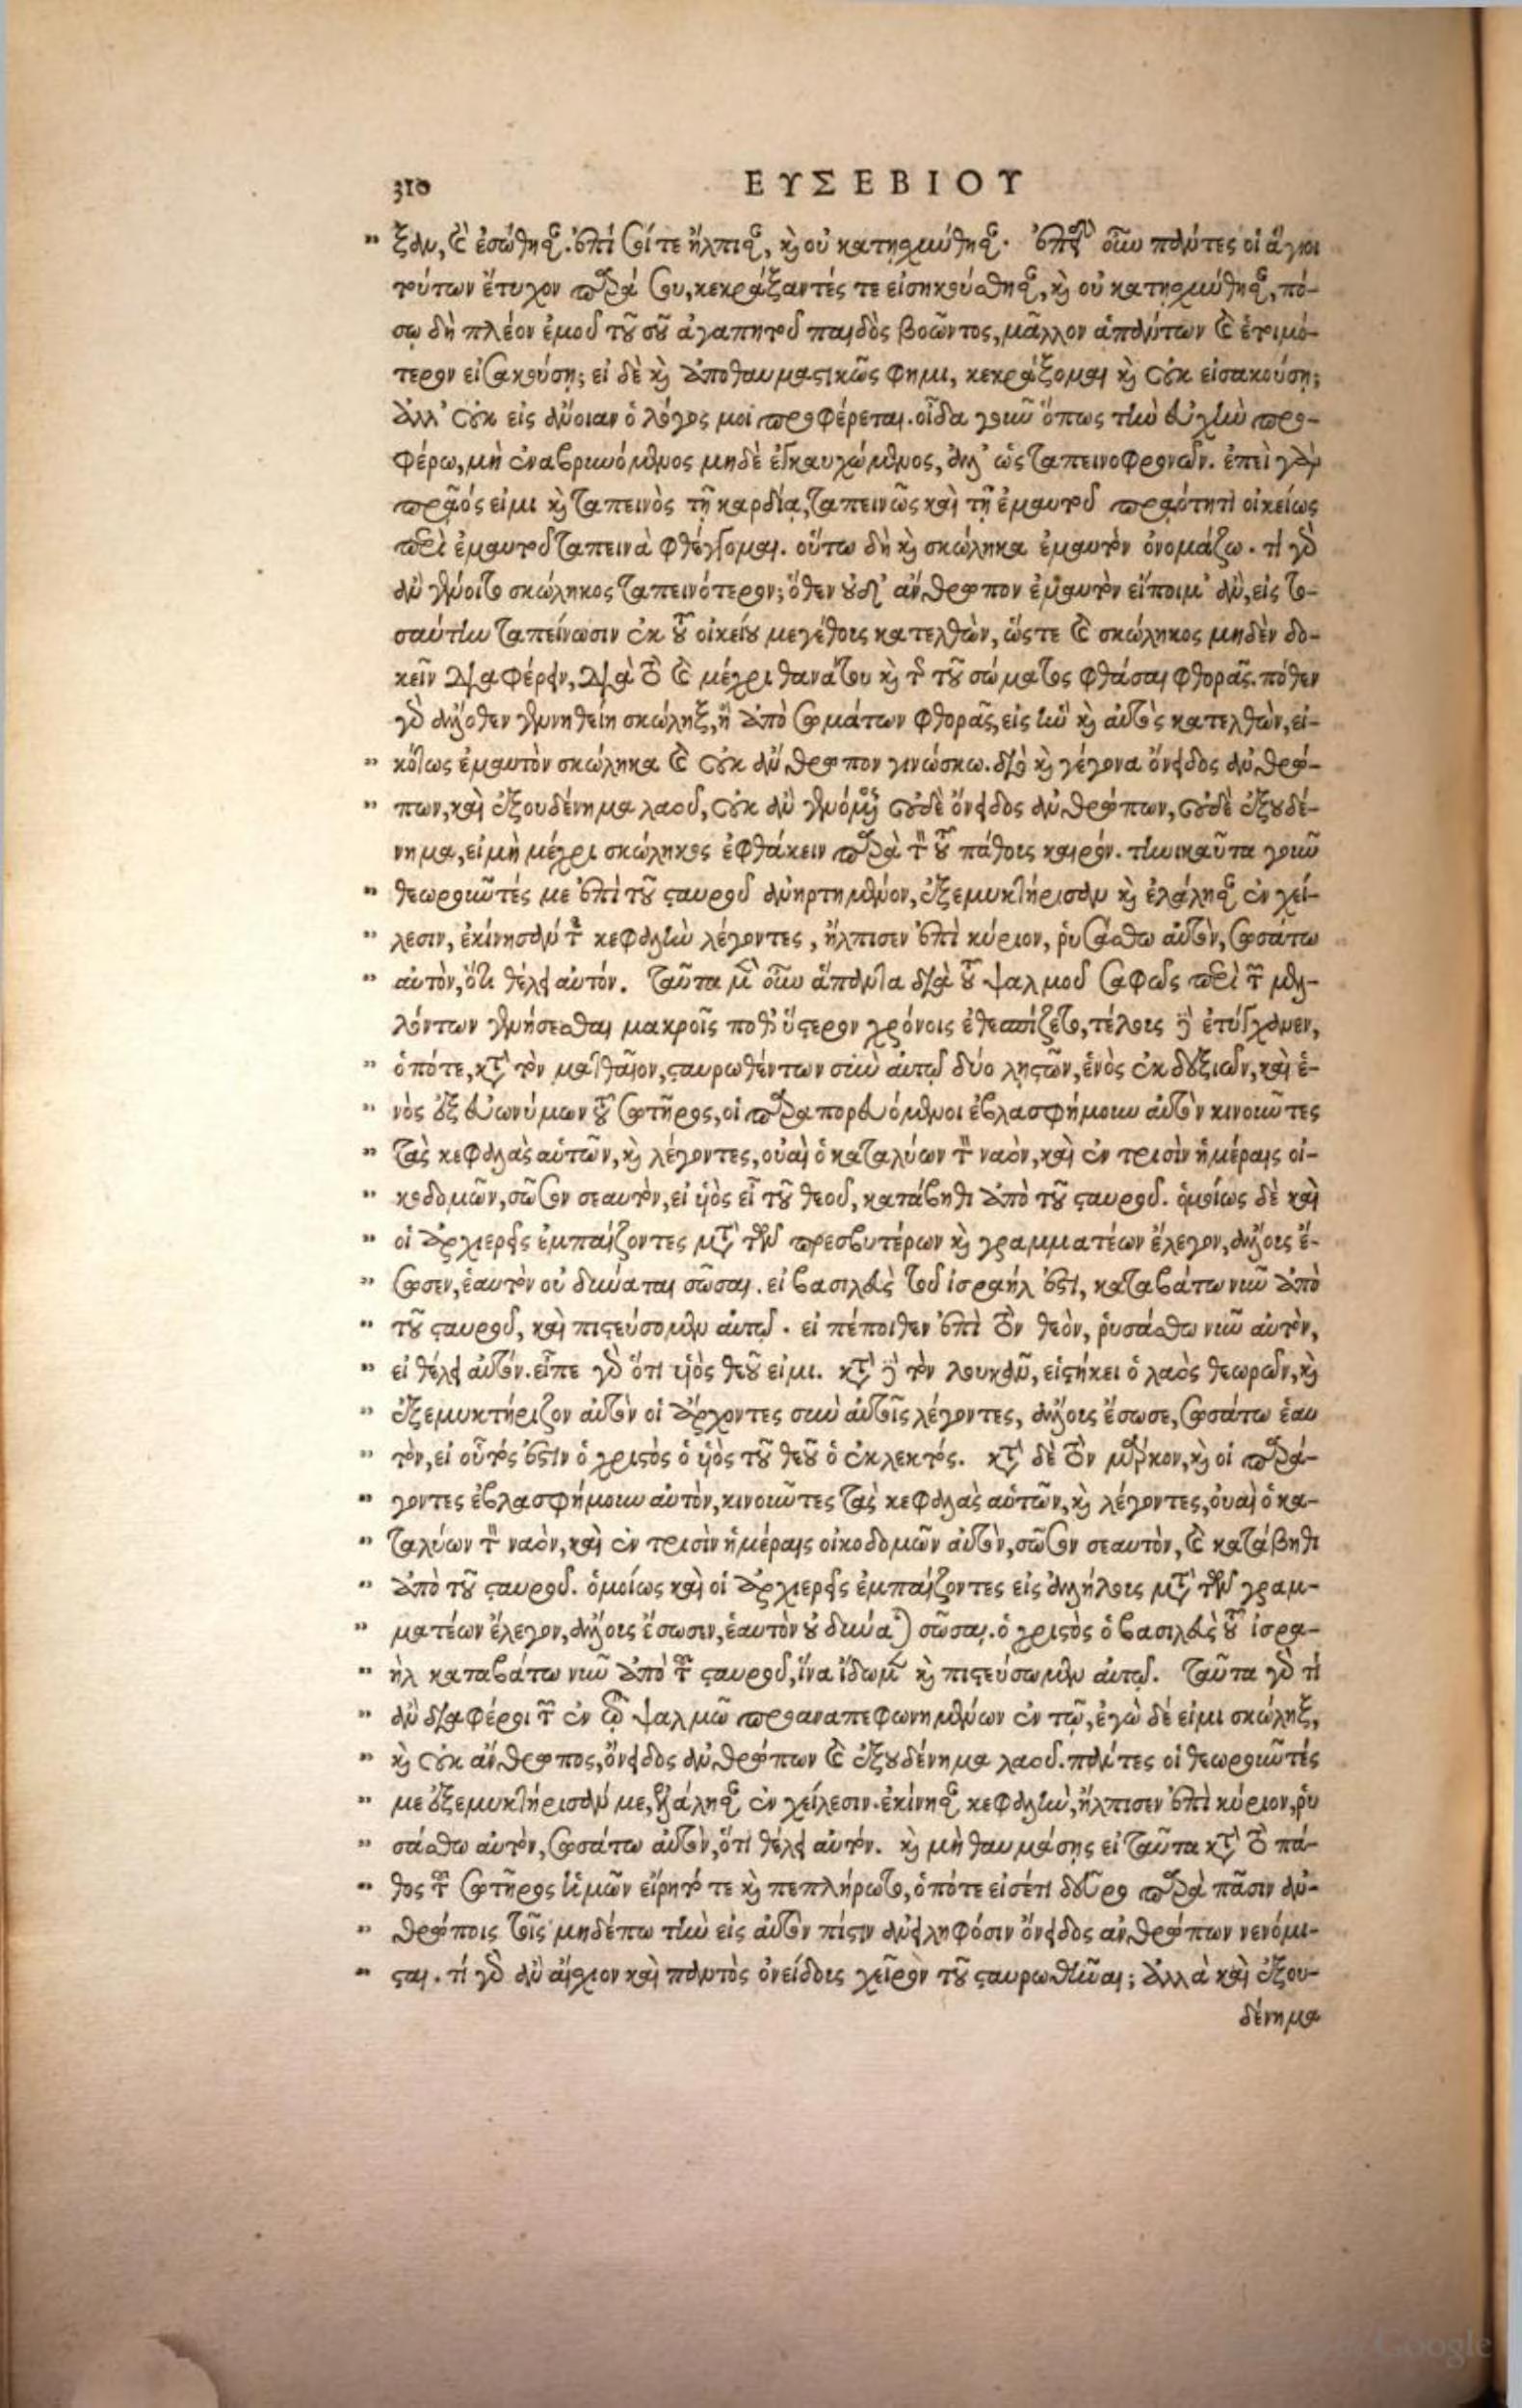 310 ΕΥΣΕΒΙΟΥ
" ξαν, καὶ ἐσώθησαν. ἐπὶ σοί τε ἤλπισαν, καὶ οὐ κατῃσχύνθησαν. ἐπεὶ οὖν πάντες οἱ ἅγιοι
τούτων ἔτυχον παρά σου, κεκράξαντές τε εἰσηκούσθησαν, καὶ οὐ κατῃσχύνθησαν, πό-
σῳ δὴ πλέον ἐμοῦ τοῦ σοῦ ἀγαπητοῦ παιδὸς βοῶντος, μᾶλλον ἁπάντων καὶ ἑτοιμό-
τερον εἰσακούσῃ; εἰ δὲ καὶ ἀποθαυμαστικῶς φημι, κεκράξομαι καὶ οὐκ εἰσακούσῃ;
ἀλλ' οὐκ εἰς ἄνοιαν ὁ λόγος μοι προφέρεται. οἶδα γοῦν ὅπως τὴν εὐχὴν προ-
φέρω, μὴ ἐναβρυνόμενος μηδὲ ἐγκαυχώμενος, ἀλλ' ὡς ταπεινοφρονῶν. ἐπεὶ γὰρ
πρᾷός εἰμι καὶ ταπεινὸς τῇ καρδίᾳ, ταπεινῶς καὶ τῇ ἐμαυτοῦ πρᾳότητι οἰκείως
περὶ ἐμαυτοῦ ταπεινὰ φθέγγομαι. οὕτω δὴ καὶ σκώληκα ἐμαυτὸν ὀνομάζω. τί γὰρ
ἂν γένοιτο σκώληκος ταπεινότερον; ὅθεν οὐδ' ἄνθρωπον ἐμαυτὸν εἴποιμ' ἂν, εἰς το-
σαύτην ταπείνωσιν ἐκ τοῦ οἰκείου μεγέθους κατελθὼν, ὥστε καὶ σκώληκος μηδὲν δο-
κεῖν διαφέρειν, διὰ τὸ καὶ μέχρι θανάτου καὶ τῆς τοῦ σώματος φθάσαι φθορᾶς. πόθεν
γὰρ ἄλλοθεν γεννηθείη σκώληξ, ἢ ἀπὸ σωμάτων φθορᾶς, εἰς ἣν καὶ αὐτὸς κατελθὼν, εἰ-
" κότως ἐμαυτὸν σκώληκα καὶ οὐκ ἄνθρωπον γινώσκω. διὸ καὶ γέγονα ὄνειδος ἀνθρώ-
" πων, καὶ ἐξουδένημα λαοῦ, οὐκ ἂν γενόμενος οὐδὲ ὄνειδος ἀνθρώπων, οὐδὲ ἐξουδέ-
νημα, εἰ μὴ μέχρι σκώληκος ἐφθάκειν παρὰ τὸν τοῦ πάθους καιρόν. τηνικαῦτα γοῦν
" θεωροῦντές με ἐπὶ τοῦ σταυροῦ ἀνηρτημένον, ἐξεμυκτήρισαν καὶ ἐλάλησαν ἐν χεί-
" λεσιν, ἐκίνησαν τὴν κεφαλὴν λέγοντες, ἤλπισεν ἐπὶ κύριον, ῥυσάσθω αὐτὸν, σωσάτω
" αὐτὸν, ὅτι θέλει αὐτόν. ταῦτα μὲν οὖν ἅπαντα διὰ τοῦ ψαλμοῦ σαφῶς περὶ τῶν μελ-
λόντων γενήσεσθαι μακροῖς ποθ' ὕστερον χρόνοις ἐθεσπίζετο, τέλους δὲ ἐτύγχανεν,
" ὁπότε, κατὰ τὸν ματθαῖον, σταυρωθέντων σὺν αὐτῷ δύο λῃστῶν, ἑνὸς ἐκ δεξιῶν, καὶ ἑ-
" νὸς ἐξ εὐωνύμων τοῦ σωτῆρος, οἱ παραπορευόμενοι ἐβλασφήμουν αὐτὸν κινοῦντες
" τὰς κεφαλὰς αὑτῶν, καὶ λέγοντες, οὐαὶ ὁ καταλύων τὸν ναὸν, καὶ ἐν τρισὶν ἡμέραις οἰ-
" κοδομῶν, σῶσον σεαυτὸν, εἰ υἱὸς εἶ τοῦ θεοῦ, κατάβηθι ἀπὸ τοῦ σταυροῦ. ὁμοίως δὲ καὶ
" οἱ ἀρχιερεῖς ἐμπαίζοντες μετὰ τῶν πρεσβυτέρων καὶ γραμματέων ἔλεγον, ἄλλους ἔ-
" σωσεν, ἑαυτὸν οὐ δύναται σῶσαι. εἰ βασιλεὺς τοῦ ἰσραήλ ἐστι, καταβάτω νῦν ἀπὸ
" τοῦ σταυροῦ, καὶ πιστεύσομεν αὐτῷ. εἰ πέποιθεν ἐπὶ τὸν θεὸν, ῥυσάσθω νῦν αὐτὸν,
" εἰ θέλει αὐτόν. εἶπε γὰρ ὅτι υἱὸς θεοῦ εἰμι. κατὰ δὲ τὸν λουκᾶν, εἱστήκει ὁ λαὸς θεωρῶν, καὶ
" ἐξεμυκτήριζον αὐτὸν οἱ ἄρχοντες σὺν αὐτοῖς λέγοντες, ἄλλους ἔσωσε, σωσάτω ἑαυ
" τὸν, εἰ οὗτός ἐστιν ὁ χριστὸς ὁ υἱὸς τοῦ θεοῦ ὁ ἐκλεκτός. κατὰ δὲ τὸν μάρκον, καὶ οἱ παρά-
" γοντες ἐβλασφήμουν αὐτὸν, κινοῦντες τὰς κεφαλὰς αὑτῶν, καὶ λέγοντες, οὐαὶ ὁ κα-
" ταλύων τὸν ναὸν, καὶ ἐν τρισὶν ἡμέραις οἰκοδομῶν αὐτὸν, σῶσον σεαυτὸν, καὶ κατάβηθι
" ἀπὸ τοῦ σταυροῦ. ὁμοίως καὶ οἱ ἀρχιερεῖς ἐμπαίζοντες εἰς ἀλλήλους μετὰ τῶν γραμ-
" ματέων ἔλεγον, ἄλλους ἔσωσεν, ἑαυτὸν οὐ δύναται σῶσαι. ὁ χριστὸς ὁ βασιλεὺς τοῦ ἰσρα-
" ὴλ καταβάτω νῦν ἀπὸ τοῦ σταυροῦ, ἵνα ἴδωμεν καὶ πιστεύσωμεν αὐτῷ. ταῦτα γὰρ τί
" ἂν διαφέροι τῶν ἐν τῷ ψαλμῷ προαναπεφωνημένων ἐν τῷ, ἐγὼ δέ εἰμι σκώληξ,
" καὶ οὐκ ἄνθρωπος, ὄνειδος ἀνθρώπων καὶ ἐξουδένημα λαοῦ. πάντες οἱ θεωροῦντές
" με ἐξεμυκτήρισάν με, ἐλάλησαν ἐν χείλεσιν. ἐκίνησαν κεφαλὴν, ἤλπισεν ἐπὶ κύριον, ῥυ
" σάσθω αὐτὸν, σωσάτω αὐτὸν, ὅτι θέλει αὐτόν. καὶ μὴ θαυμάσῃς εἰ ταῦτα κατὰ τὸ πά-
" θος τοῦ σωτῆρος ἡμῶν εἴρητό τε καὶ πεπλήρωτο, ὁπότε εἰσέτι δεῦρο παρὰ πᾶσιν ἀν-
" θρώποις τοῖς μηδέπω τὴν εἰς αὐτὸν πίστιν ἀνειληφόσιν ὄνειδος ἀνθρώπων νενόμι-
" σται. τί γὰρ ἂν αἴσχιον καὶ παντὸς ὀνείδους χεῖρον τοῦ σταυρωθῆναι; ἀλλὰ καὶ ἐξου-
δένημα
Google